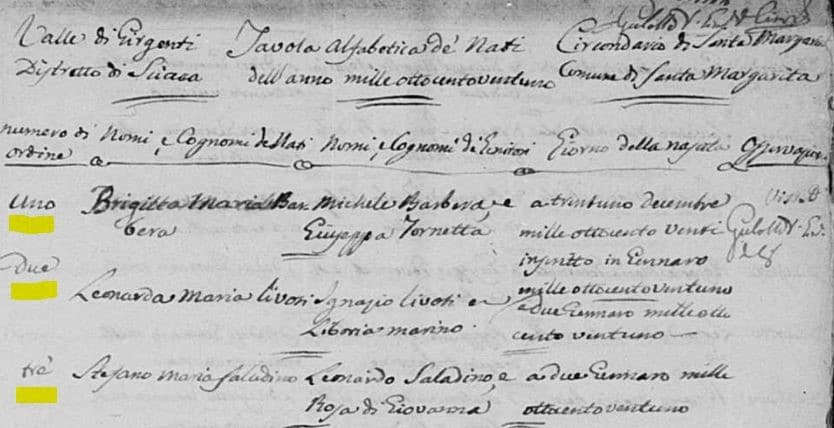 Gulotta
Valle di Girgenti Tavola Alfabetica de' Nati Circondario di Santa Margarita
Distretto di Sciacca dell'anno mille ottocentoventuno Comune di Santa Margarita
numero di Nomi, e Cognomi de Nati Nomi, e Cognomi di Genitori Giorno della nascita Osservazioni
ordine
Uno Brigitta Maria Bar Michele Barbera, e a trentuno decembre
bera Giuseppa Tornetta mille ottocento venti
due inscritto in Gennaro
mille ottocentoventuno
Leonarda Maria Livoti Ignazio Livoti e a due Gennaro mille otto
Liboria Marino cento ventuno
tré Stefano Maria Saladino Leonardo Saladino e a due Gennaro mille
Rosa di Giovanna ottocentoventuno